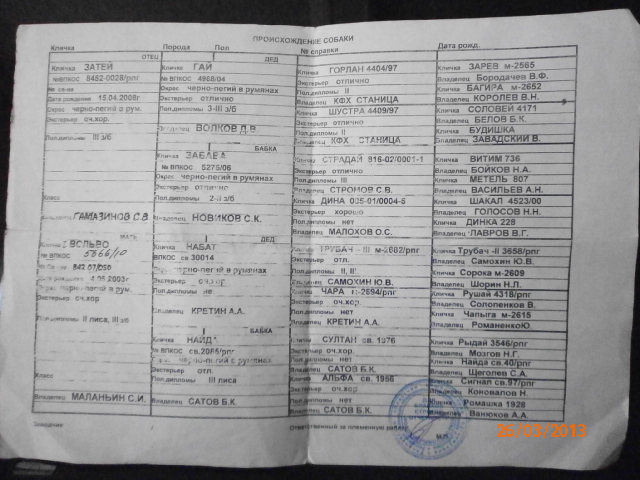 ПРОИСХОЖДЕНИЕ СОБАКИ
Кличка Порода Пол № справки Дата рожд.
ОТЕЦ
Кличка ЗАТЕЙ
№ВПКОС 8452-0028/рпг
№ св-ва
Дата рождения 15.04.2008г
Окрас черно-пегий в рум.
Экстерьер оч.хор.
Пол.дипломы III з/б
Класс
ГАМАЗИНОВ С.В.
МАТЬ
ВОЛЬВО
№ ВПКОС 5666/10
842 07/050
4.05.2003г
черно-пегий в рум.
Экстерьер оч.хор
Пол.дипломы II лиса, III з/б
Класс
Владелец МАЛАНЬИН С.И.
Заводчик
ДЕД
Кличка ГАЙ
№ ВПКОС 4968/04
Окрас черно-пегий в румянах
Экстерьер отлично
Пол.дипломы 3-III з/б
Владелец ВОЛКОВ Д.В.
БАБКА
Кличка ЗАБАВА
№ ВПКОС 5275/06
Окрас черно-пегий в румянах
Экстерьер отлично
Пол.дипломы 2-II з/б
Владелец НОВИКОВ С.К.
ДЕД
Кличка НАБАТ
ВПКОС св 30014
черно-пегий в румянах
Экстерьер оч.хор
Пол.дипломы нет
Владелец КРЕТИН А.А.
БАБКА
Кличка НАЙДА
№ ВПКОС св.2085/рпг
черно-пегий с румянах
Экстерьер отл.
Пол.дипломы III лиса
Владелец САТОВ Б.К.
Кличка ГОРЛАН 4404/97
Экстерьер отлично
Пол.дипломы II
Владелец КФХ СТАНИЦА
Кличка ШУСТРА 4409/97
Экстерьер отлично
Пол.дипломы II
Владелец КФХ СТАНИЦА
Кличка СТРАДАЙ 916-02/0001-1
Экстерьер отлично
Пол.дипломы III
Владелец СТРОМОВ С.В.
Кличка ДИНА 035-01/0004-5
Экстерьер хорошо
Пол.дипломы нет
Владелец МАЛОХОВ О.С.
Кличка ТРУБАЧ -III м-2682/рпг
Экстерьер отл.
Пол.дипломы II, II
Владелец САМОХИН Ю.В.
Кличка ЧАРА м-2694/рпг
Экстерьер оч.хор.
Пол.дипломы нет
Владелец КРЕТИН А.А.
Кличка СУЛТАН св. 1976
Экстерьер оч.хор.
Пол.дипломы нет
Владелец САТОВ Б.К.
Кличка АЛЬФА св. 1956
Экстерьер оч.хор
Пол.дипломы нет
Владелец САТОВ Б.К.
Ответственный за племенную работу
М.П.
Кличка ЗАРЕВ м-2565
Владелец Бородачев В.Ф.
Кличка БАГИРА м-2652
Владелец КОРОЛЕВ В.Н.
Кличка СОЛОВЕЙ 4171
Владелец БЕЛОВ Б.К.
Кличка БУДИШКА
Владелец ЗАВАДСКИЙ В.
Кличка ВИТИМ 736
Владелец БОЙКОВ Н.А.
Кличка МЕТЕЛЬ 807
Владелец ВАСИЛЬЕВ А.Н.
Кличка ШАКАЛ 4523/00
Владелец ГОЛОСОВ Н.Н.
Кличка ДИНКА 228
Владелец ЛАВРОВ В.Г.
Кличка Трубач -II 3658/рпг
Владелец Самохин Ю.В.
Кличка Сорока м-2609
Владелец Шорин Н.Л.
Кличка Рушай 4318/рпг
Владелец Солопенков В.
Кличка Чапыга м-2615
Владелец РоманенкоЮ.
Кличка Рыдай 3546/рпг
Владелец Мозгов Н.Г.
Кличка Найда св.40/рпг
Владелец Щеголев С.А.
Кличка Сигнал св.97/рпг
Владелец Коновалов Н.
Кличка Ромашка 1928
Владелец Ванюков А.А.
26/03/2013